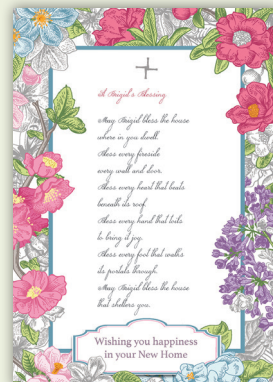 A Brigid's Blessing
May Brigid bless the house
where in you dwell.
Bless every fireside
every wall and door.
Bless every heart that beats
beneath its roof.
Bless every hand that toils
to bring it joy.
Bless every foot that walks
its portals through.
May Brigid bless the house
that shelters you.
Wishing you happiness
in your New Home